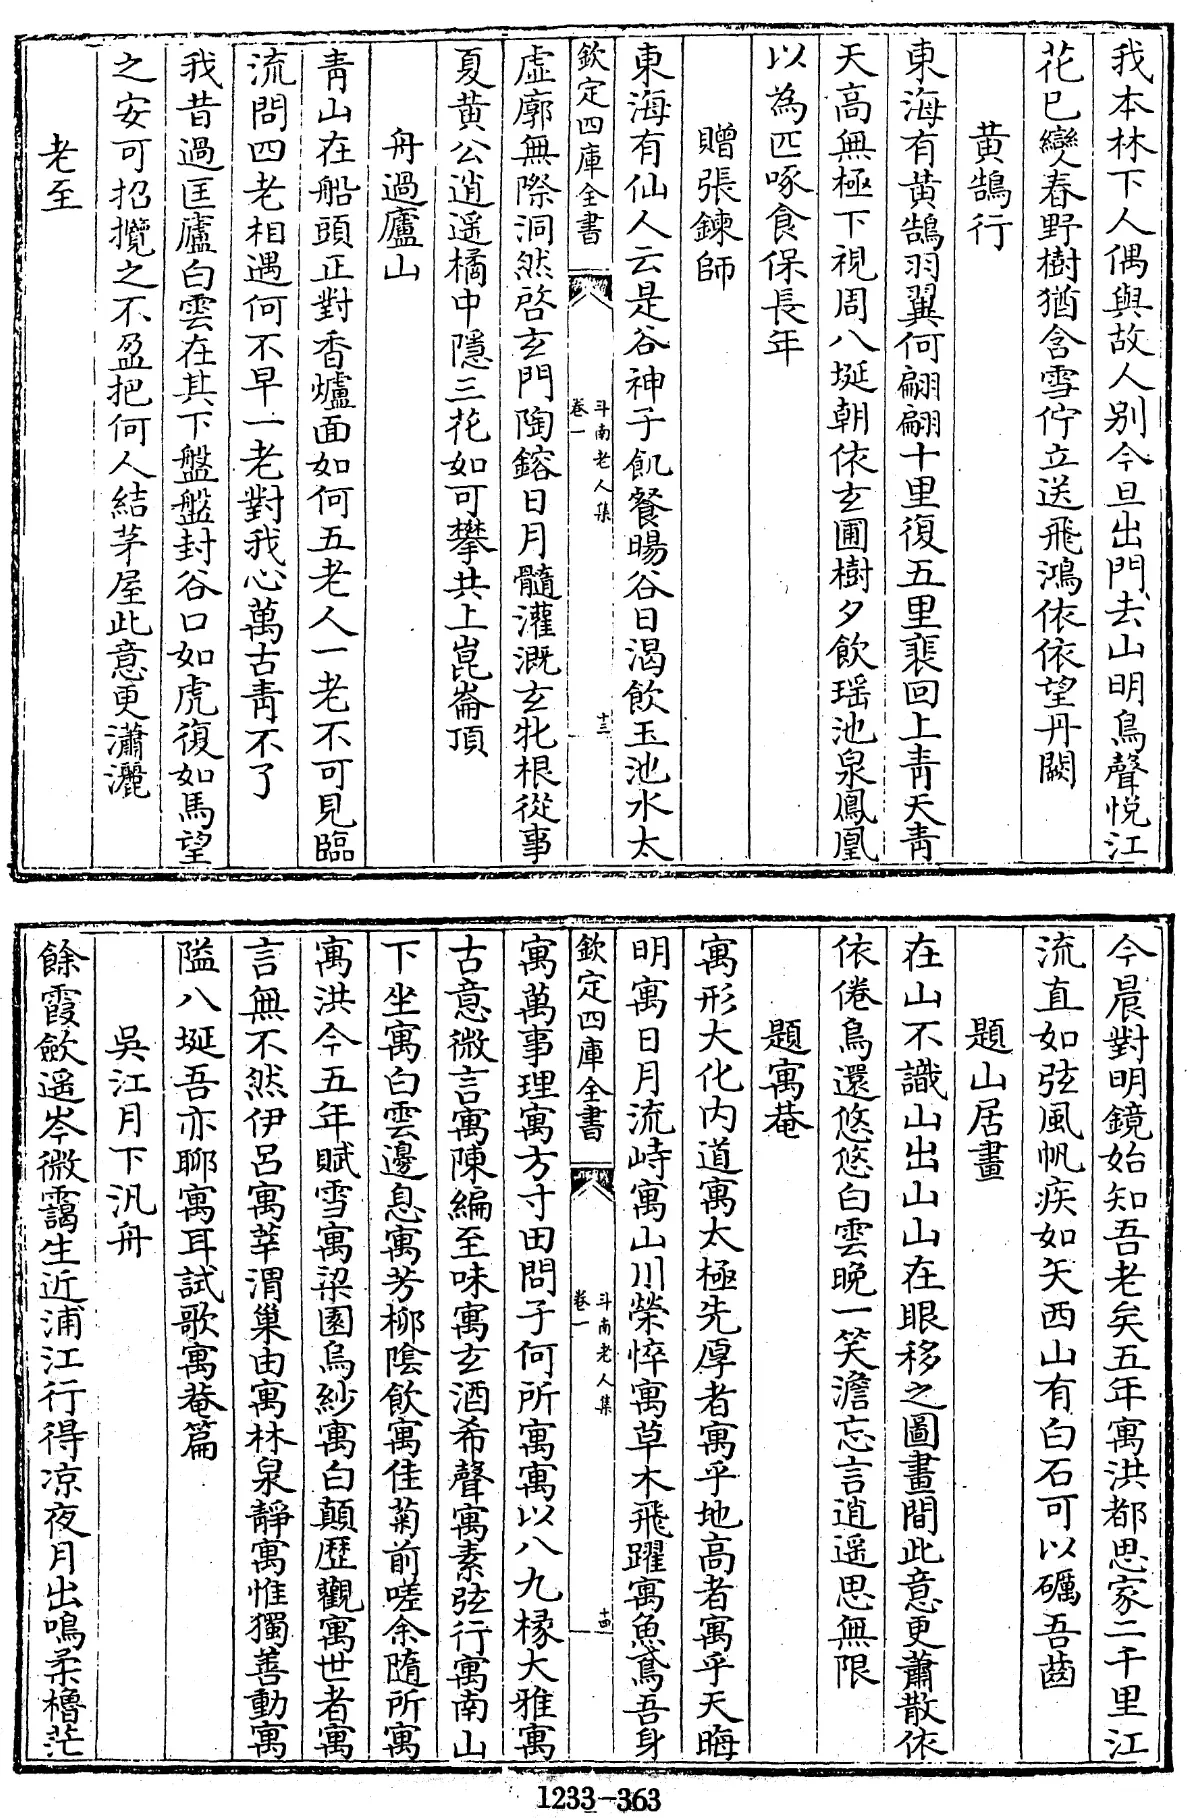 我本林下人偶與故人别今旦出門去山明鳥聲悦江
花已變春野樹猶含雪佇立送飛鴻依依望丹闕
黄鵠行
東海有黄鵠羽翼何翩翩十里復五里裴回上青天青
天高無極下視周八埏朝依玄圃樹夕飲瑶池泉鳳凰
以為匹啄食保長年
贈張鍊師
東海有仙人云是谷神子飢餐暘谷日渴飲玉池水太
欽定四庫全書
卷一
斗南老人集
十三
虚廓無際洞然啓玄門陶鎔日月髓灌溉玄牝根從事
夏黄公逍遥橘中隱三花如可攀共上崑崙頂
舟過廬山
青山在船頭正對香爐面如何五老人一老不可見臨
流問四老相遇何不早一老對我心萬古青不了
我昔過匡廬白雲在其下盤盤封谷口如虎復如馬望
之安可招攬之不盈把何人結茅屋此意更瀟灑
老至
今晨對明鏡始知吾老矣五年寓洪都思家二千里江
流直如弦風帆疾如矢西山有白石可以礪吾齒
題山居畫
在山不識山出山山在眼移之圖畫間此意更蕭散依
依倦鳥還悠悠白雲晚一笑澹忘言逍遥思無限
題寓菴
寓形大化内道寓太極先厚者寓乎地高者寓乎天晦
明寓日月流峙寓山川榮悴寓草木飛躍寓魚鳶吾身
欽定四庫全書
卷一
斗南老人集
十四
寓萬事理寓方寸田問子何所寓寓以八九椽大雅寓
古意微言寓陳編至味寓玄酒希聲寓素弦行寓南山
下坐寓白雲邊息寓芳柳陰飲寓佳菊前嗟余隨所寓
寓洪今五年賦雪寓梁園烏紗寓白顛歷觀寓世者寓
言無不然伊吕寓莘渭巢由寓林泉靜寓惟獨善動寓
隘八埏吾亦聊寓耳試歌寓菴篇
吳江月下汎舟
餘霞斂遥岑微靄生近浦江行得凉夜月出鳴柔櫓茫
1233-363